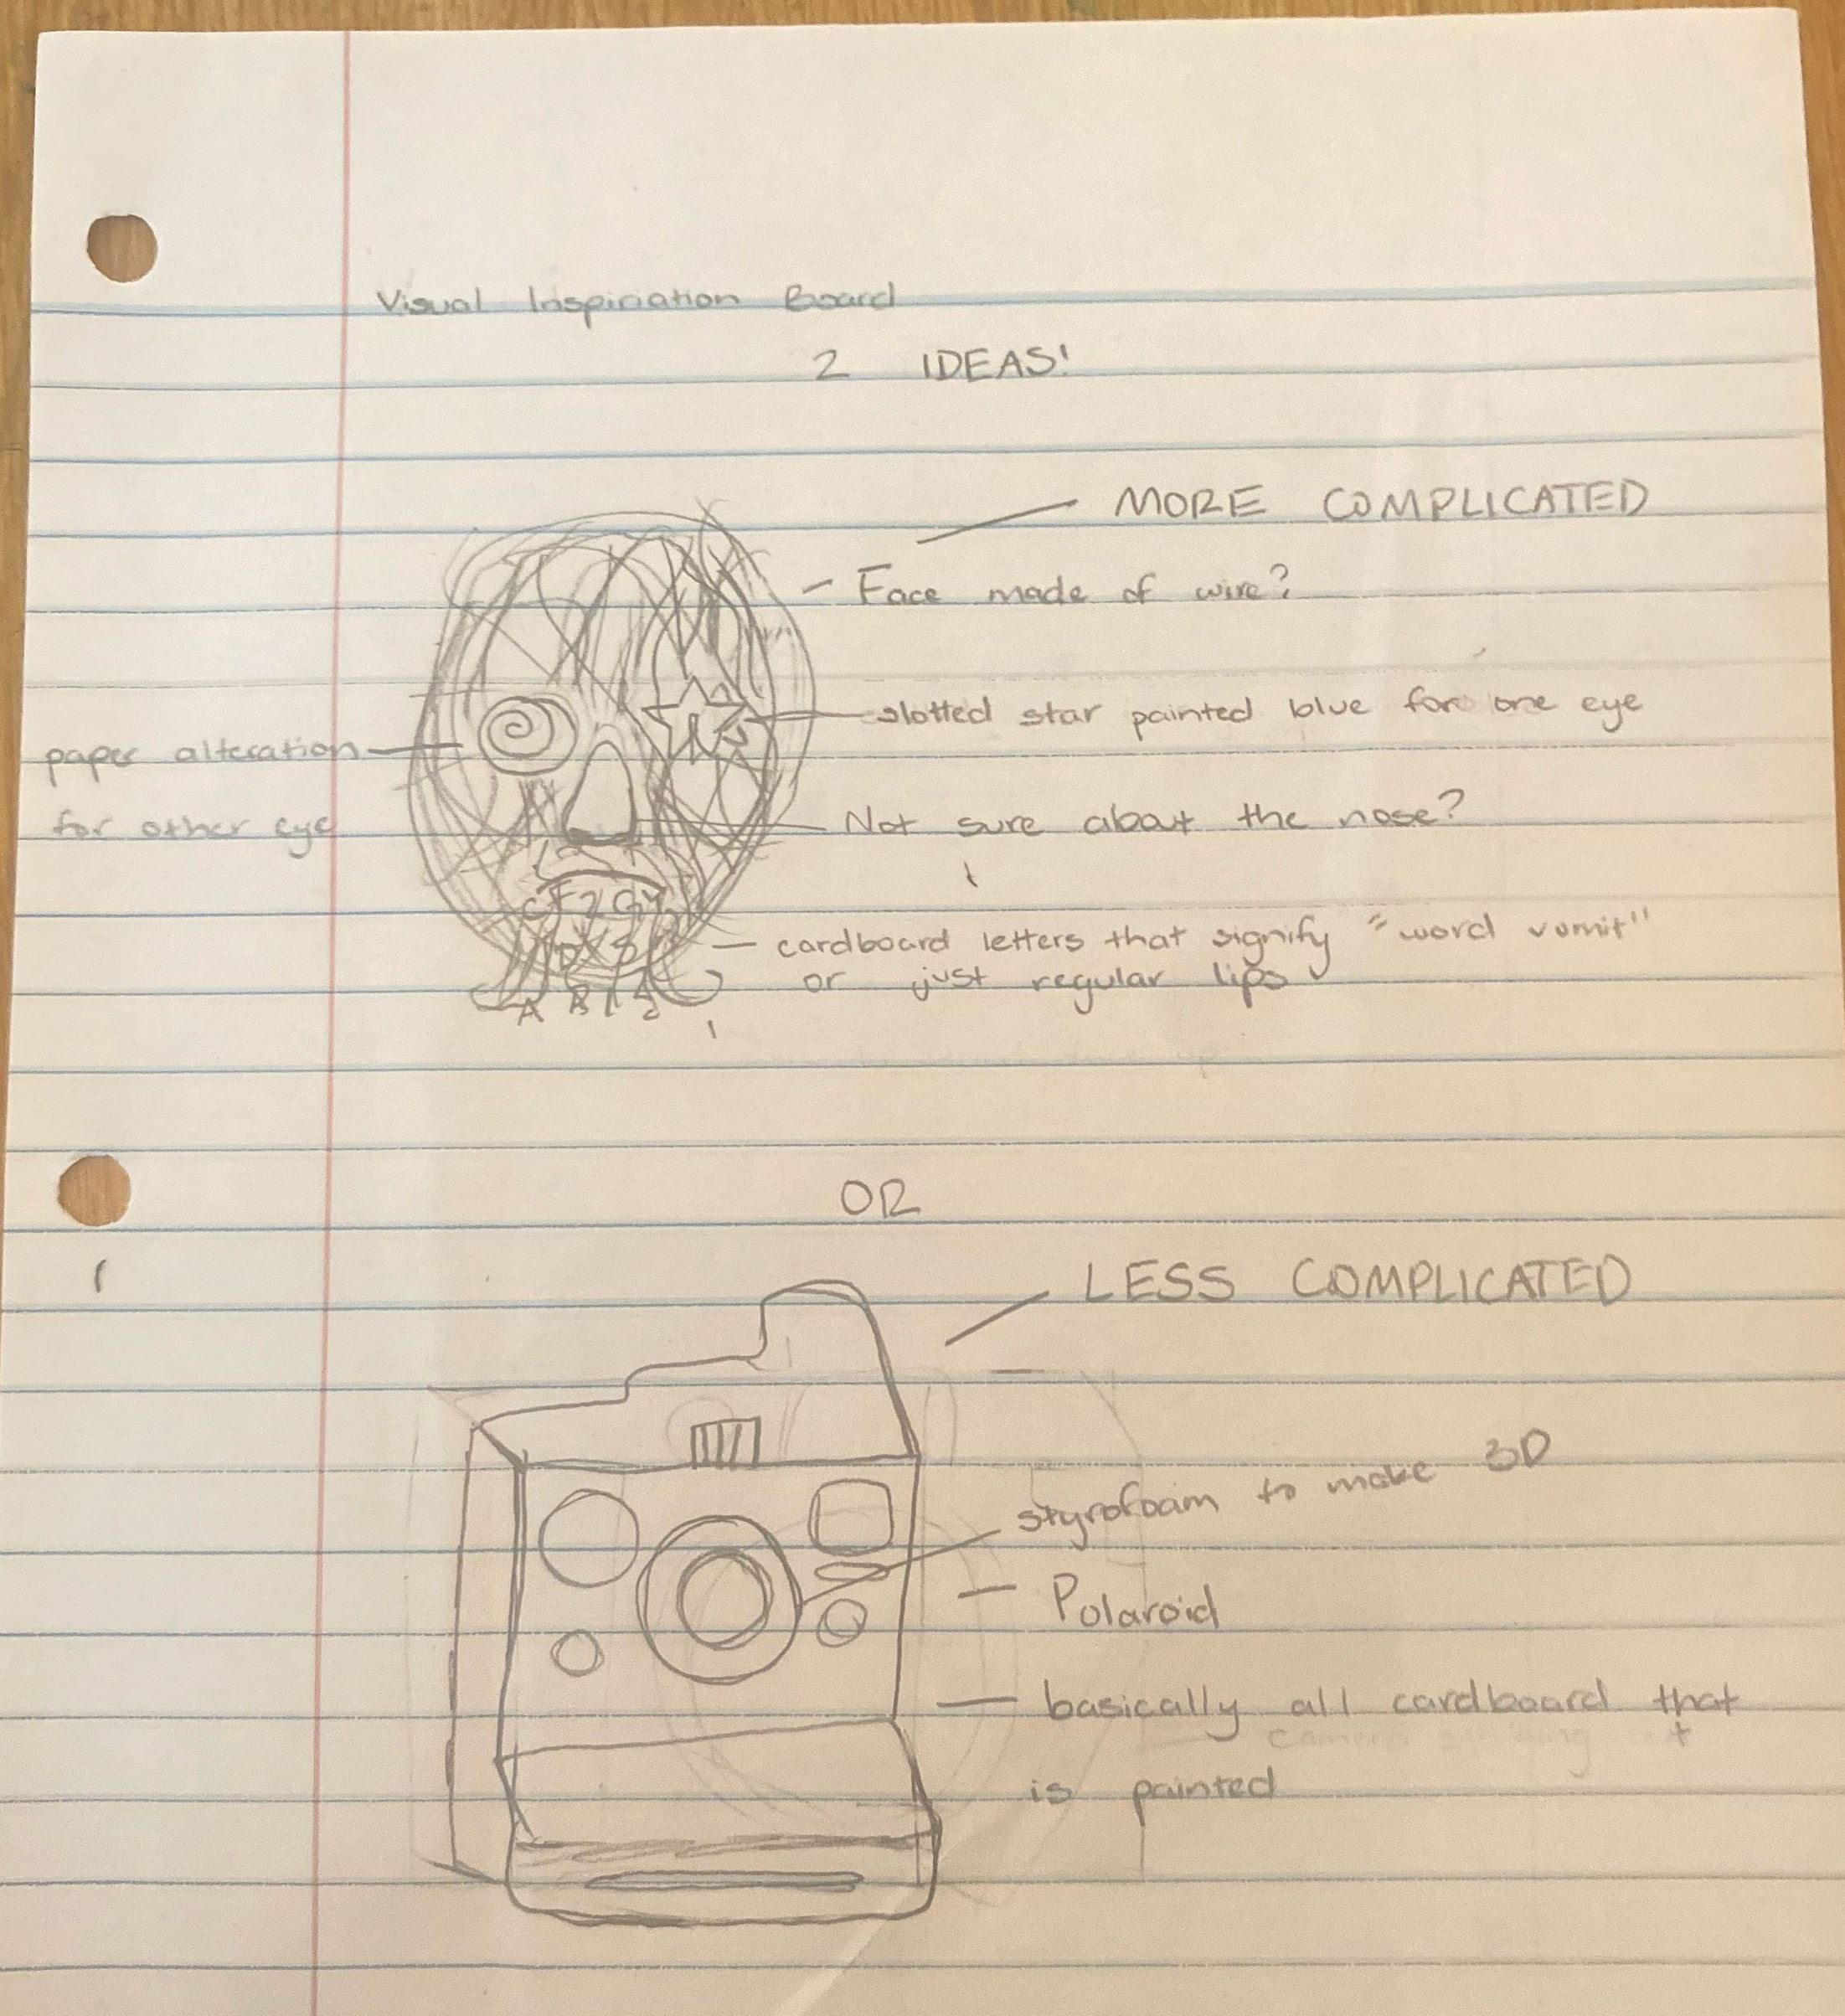 Visual Inspiriation Board
2 IDEAS!
MORE COMPLICATED
- Face made of wire?
slotted star painted blue for one eye
paper alteration
for other eye
Not sure about the nose?
CFZGY
D S
A B 1 2
- cardboard letters that signify "word vomit"
or just regular lips
OR
LESS COMPLICATED
styrofoam to make 3D
- Polaroid
- basically all cardboard that
is painted